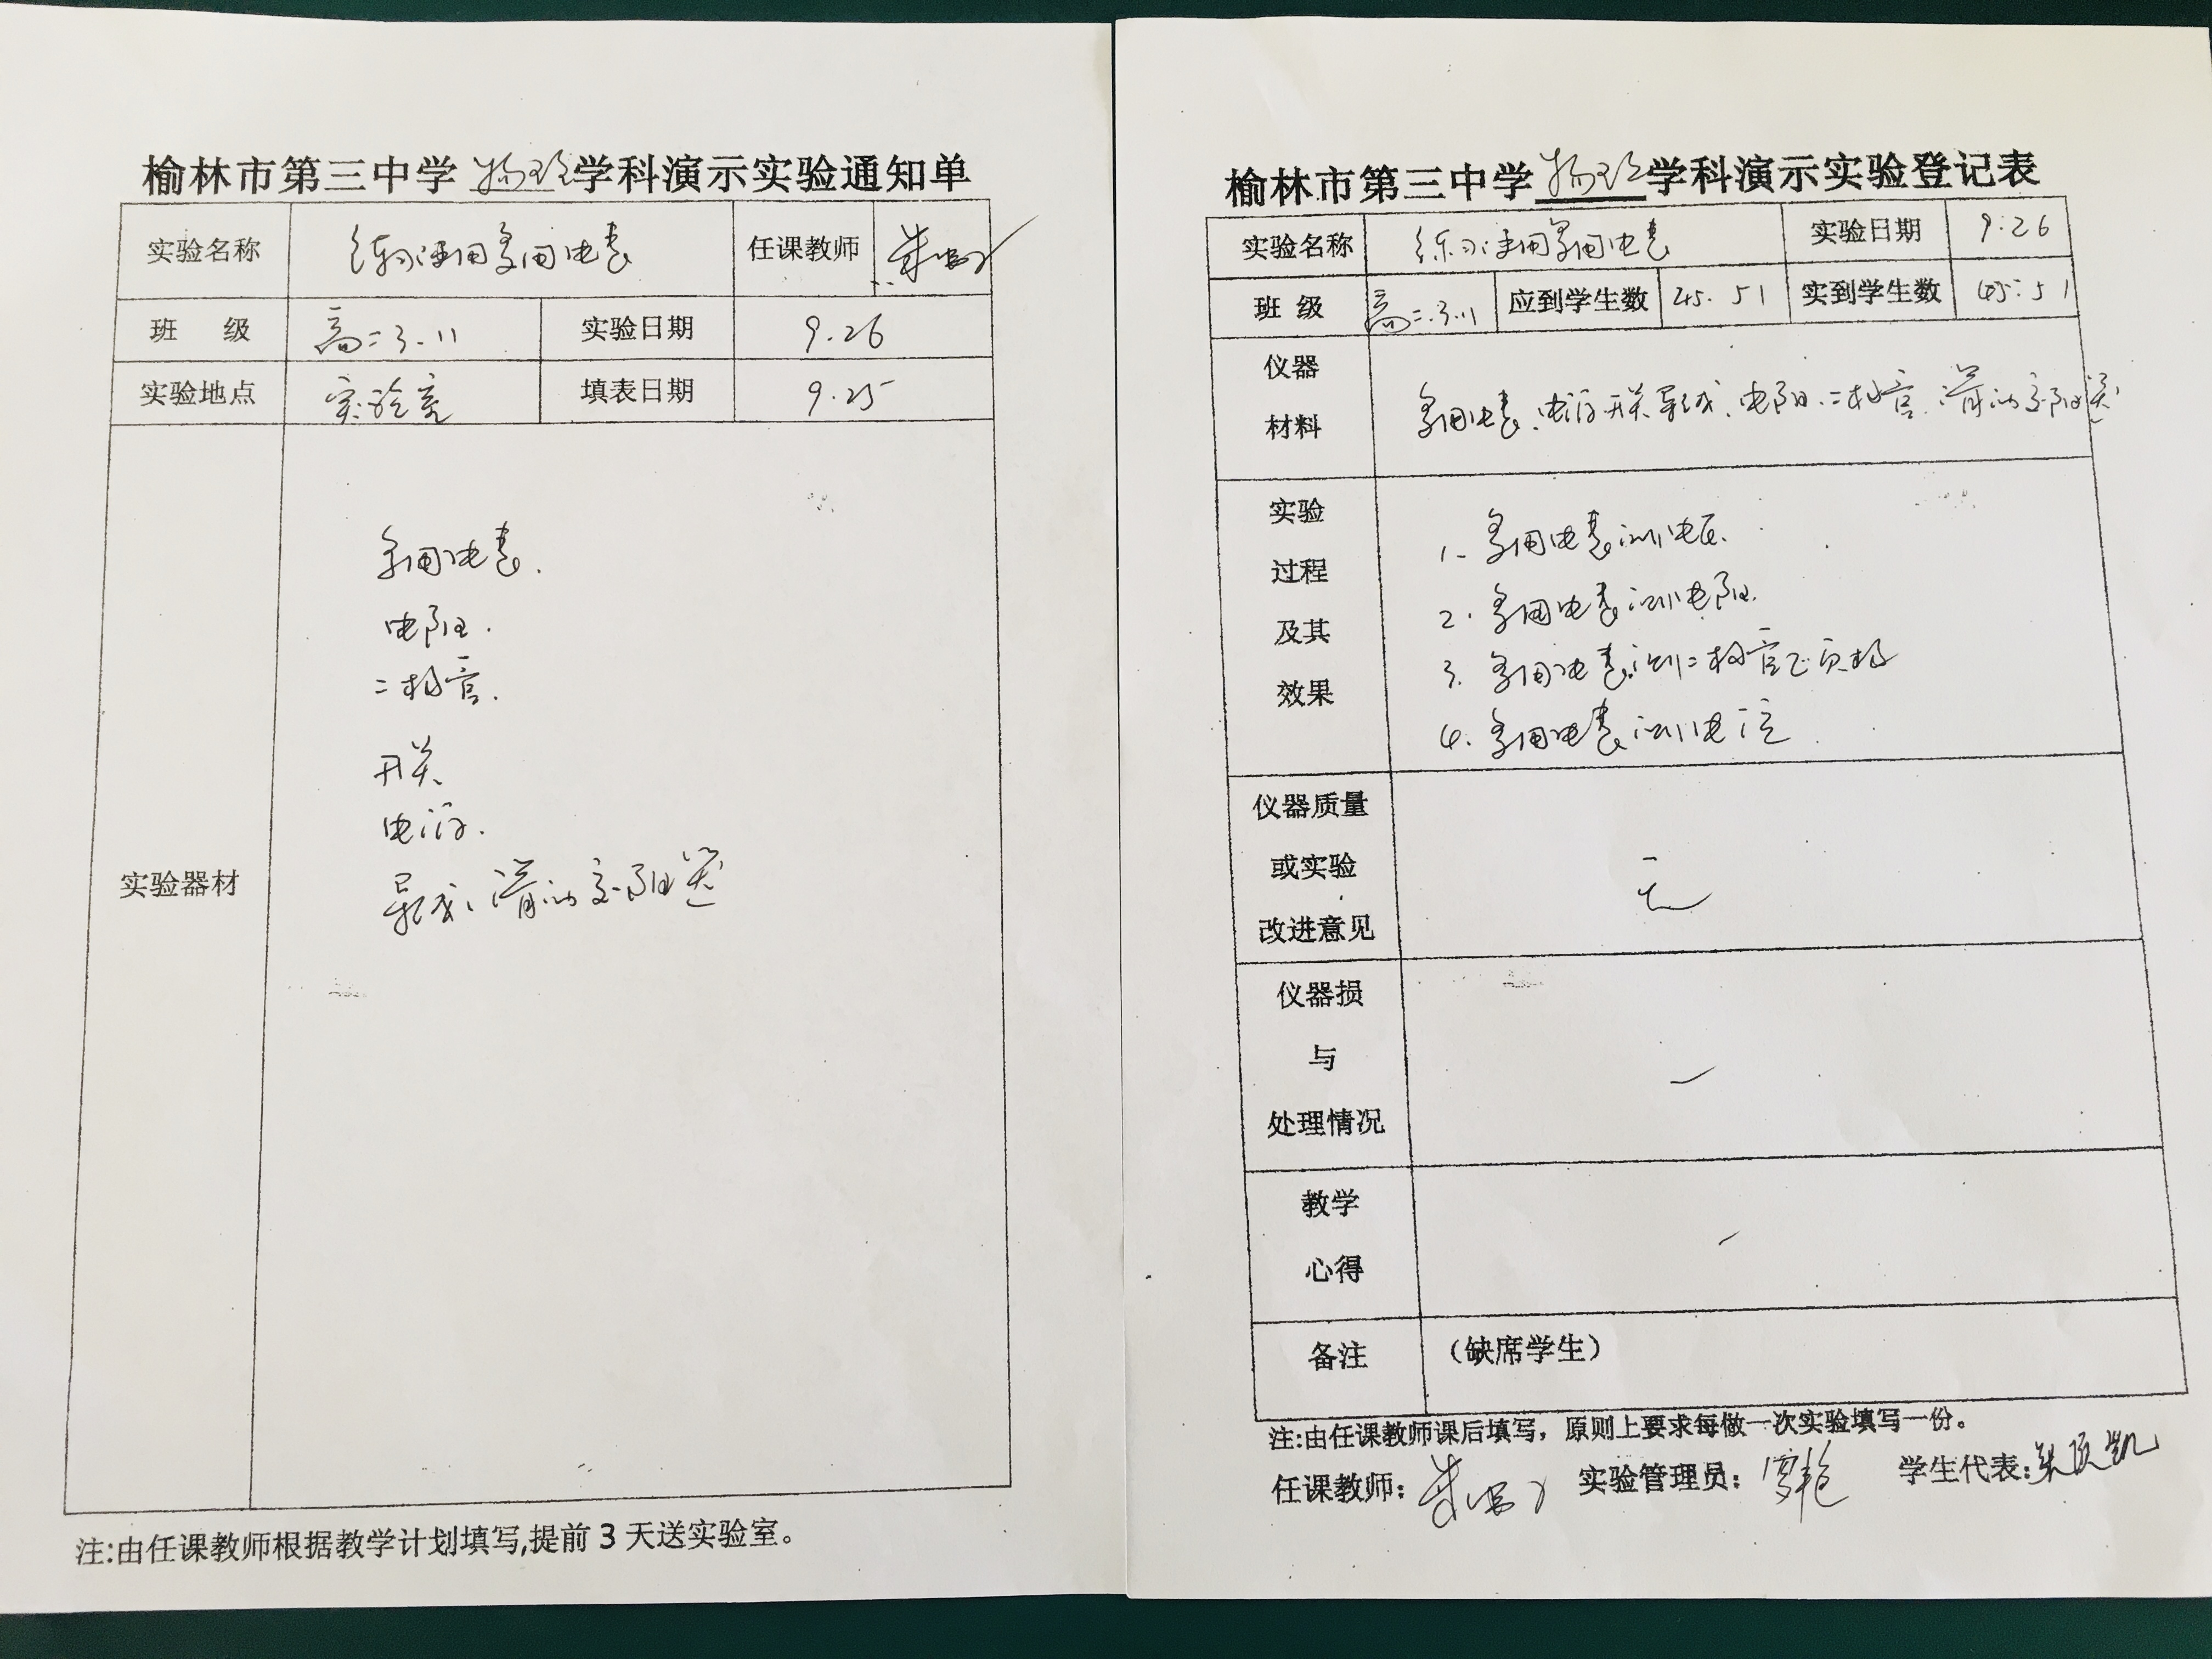 榆林市第三中学 物理 学科演示实验通知单
实验名称 练习使用多用电表 任课教师
班 级 高二3.11 实验日期 9.26
实验地点 实验室 填表日期 9.25
实验器材
多用电表.
电阻.
二极管.
开关
电源.
导线、滑动变阻器
注:由任课教师根据教学计划填写,提前3天送实验室。
榆林市第三中学 物理 学科演示实验登记表
实验名称 练习使用多用电表 实验日期 9.26
班 级 高二.3.11 应到学生数 45. 51 实到学生数 45. 51
仪器
材料
多用电表、电源、开关、导线、电阻、二极管、滑动变阻器
实验
过程
及其
效果
1. 多用电表测电压.
2. 多用电表测电阻.
3. 多用电表测二极管正负极
4. 多用电表测电流
仪器质量
或实验
改进意见
无
仪器损
与
处理情况
教学
心得
备注 （缺席学生）
注:由任课教师课后填写，原则上要求每做一次实验填写一份。
任课教师: 实验管理员: 学生代表: